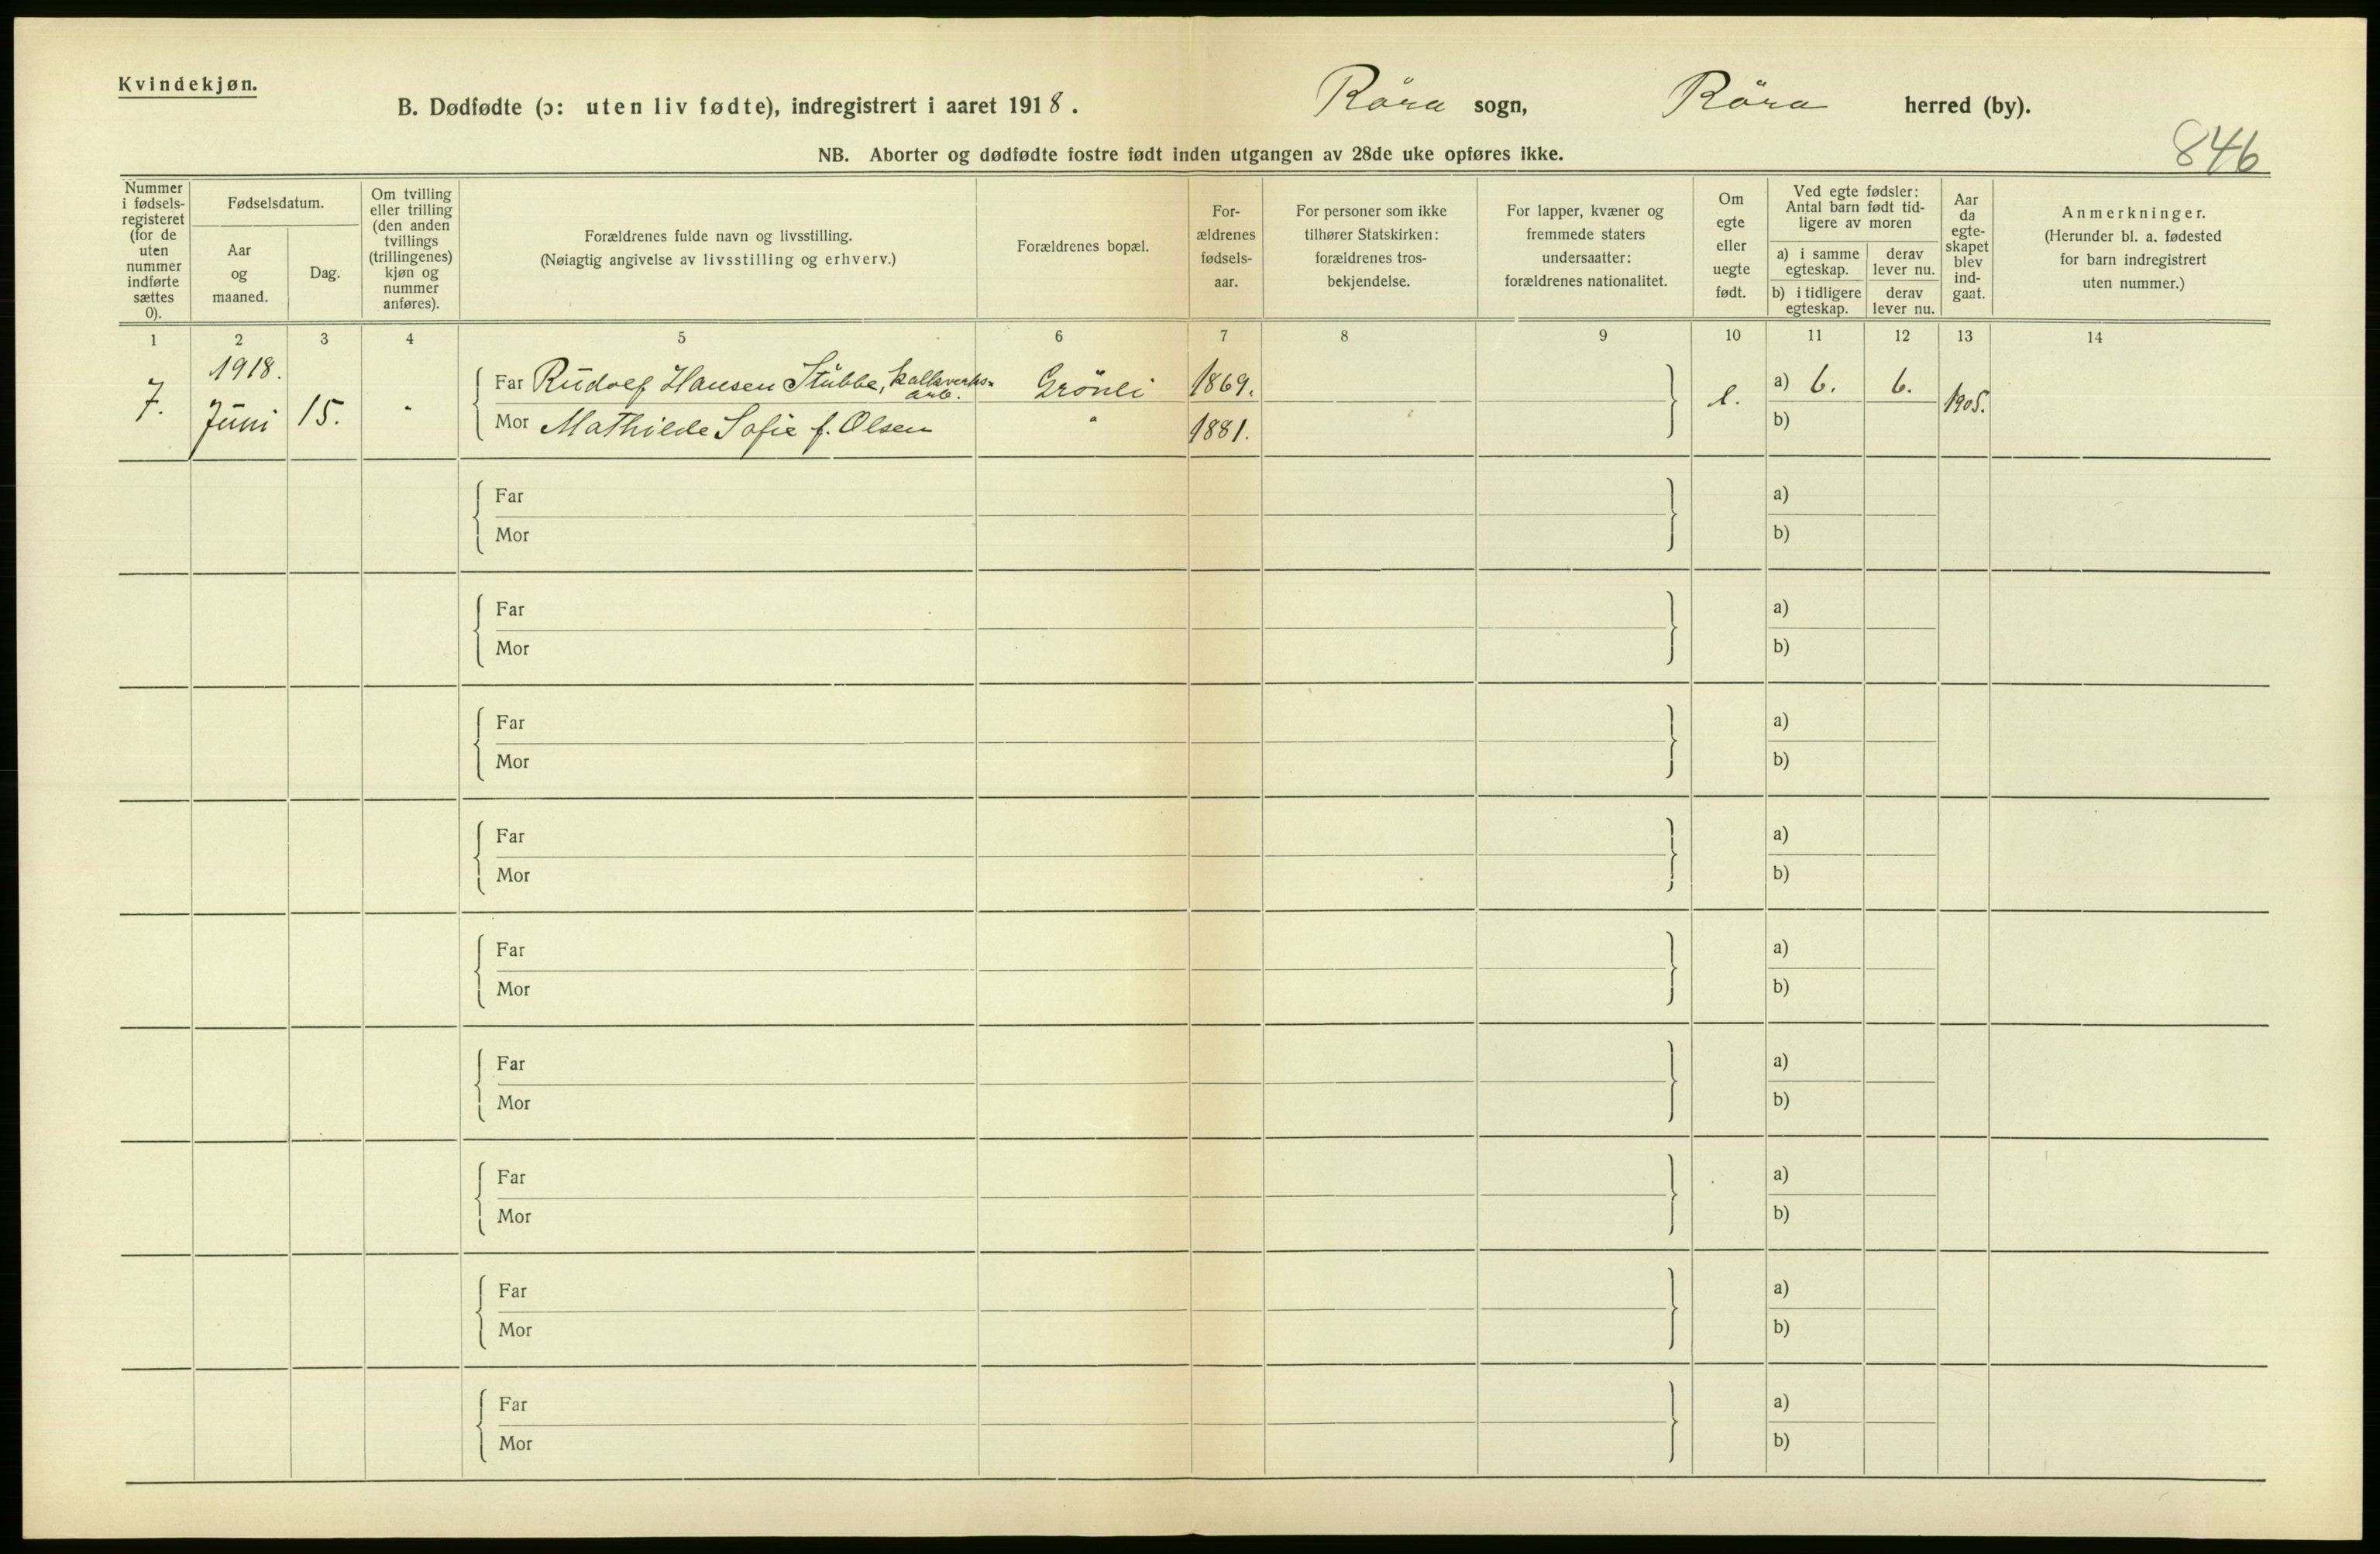 Kvindekjøn.
B. Dødfødte (ɔ: uten liv fødte), indregistrert i aaret 1918. Röra sogn, Röra herred (by).
NB. Aborter og dødfødte fostre født inden utgangen av 28de uke opføres ikke.
846
Nummer
i fødsels-
registeret
(for de
uten
nummer
indførte
sættes
0).
Fødselsdatum.
Aar
og
maaned.
Dag.
Om tvilling
eller trilling
(den anden
tvillings
(trillingenes)
kjøn og
nummer
anføres).
Forældrenes fulde navn og livsstilling.
(Nøiagtig angivelse av livsstilling og erhverv.)
Forældrenes bopæl.
For-
ældrenes
fødsels-
aar.
For personer som ikke
tilhører Statskirken:
forældrenes tros-
bekjendelse.
For lapper, kvæner og
fremmede staters
undersaatter:
forældrenes nationalitet.
Om
egte
eller
uegte
født.
Ved egte fødsler:
Antal barn født tid-
ligere av moren
a) i samme
egteskap.
derav
lever nu.
b) i tidligere
egteskap.
derav
lever nu.
Aar
da
egte-
skapet
blev
ind-
gaat.
Anmerkninger.
(Herunder bl. a. fødested
for barn indregistrert
uten nummer.)
1 2 3 4 5 6 7 8 9 10 11 12 13 14
7.
1918.
Juni 15. "
Far Rudolf Hansen Stubbe, kalkverks-
arb.
Grönli 1869.
Mor Mathilde Sofie f. Olsen " 1881.
e.
a) 6. 6.
b)
1905.
Far a)
Mor b)
Far a)
Mor b)
Far a)
Mor b)
Far a)
Mor b)
Far a)
Mor b)
Far a)
Mor b)
Far a)
Mor b)
Far a)
Mor b)
Far a)
Mor b)